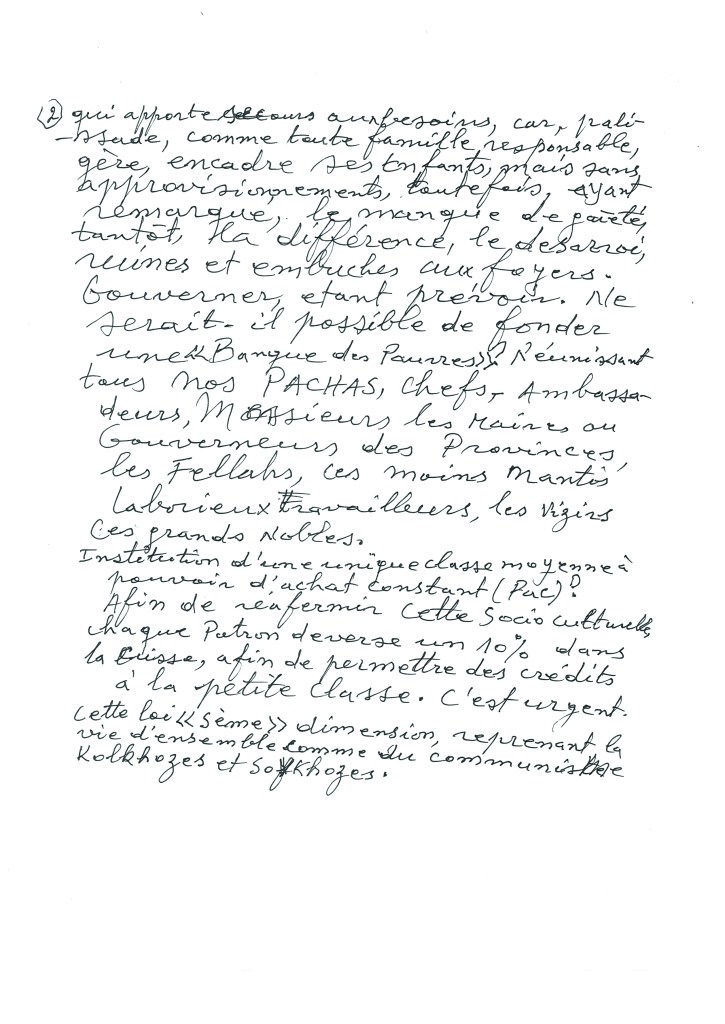 (2) qui apporte secours aux besoins, car, pali-
-ssade, comme toute famille, responsable,
gère, encadre ses Enfants, mais sans
approvisionnements, toutefois, ayant
remarque, le manque de gaieté,
tantôt, la différence, le desarroi,
ruines et embuches aux foyers.
Gouverner, etant prévoir. Ne
serait-il possible de fonder
une «Banque des Pauvres»? Réunissant
tous nos PACHAS, Chefs, Ambassa-
deurs, Messieurs les Maires ou
Gouverneurs des Provinces,
les Fellahs, ces moins Nantis
Laborieux travailleurs, les Vizirs
Ces grands Nobles.
Institution d'une unique classe moyenne à
pouvoir d'achat constant (Pac)?
Afin de reafermir cette Socio culturelle,
chaque Patron deverse un 10% dans
la Caisse, afin de permettre des crédits
à la petite classe. C'est urgent.
Cette loi «5ème» dimension, reprenant la
vie d'ensemble comme du communisme
Kolkhozes et Sofkhozes.